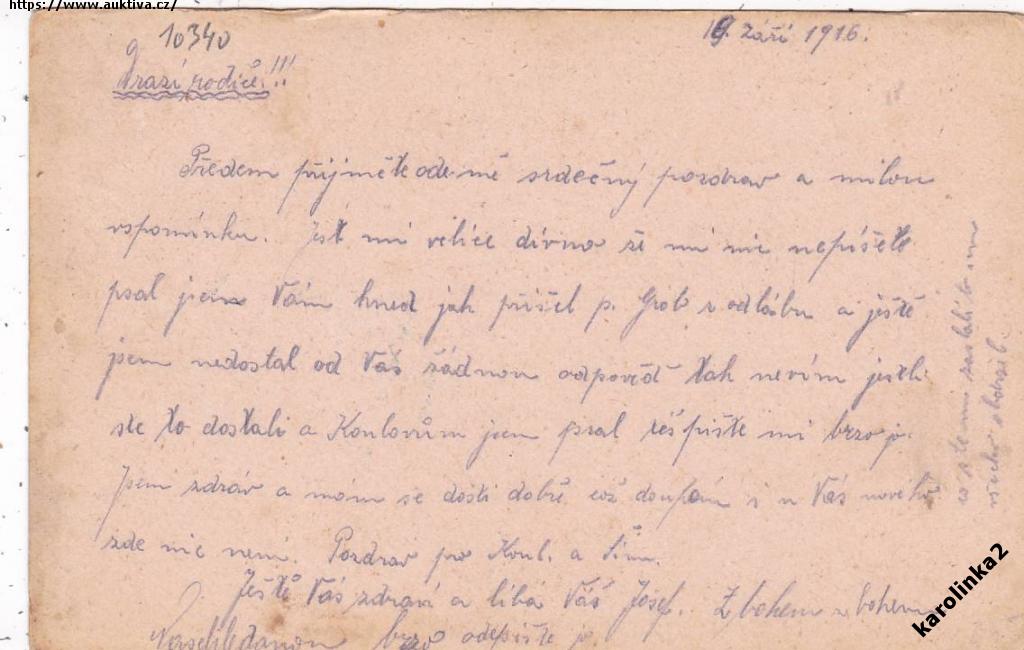 https://www.auktiva.cz/
10340
19. září 1916.
Drazí rodiče!!!
Předem přijměte ode mě srdečný pozdrav a milou
vspomínku. Jest mi velice divno že mi nic nepíšete
psal jsem Vám hned jak přišel p. Grob z odlábu a ještě
jsem nedostal od Vás žádnou odpověď tak nevím jestli
ste to dostali a Koulovům jsem psal též pište mi brzo
Jsem zdráv a mám se dosti dobře což doufám i u Vás nového
zde nic není. Pozdrav pro Koul. a Ším.
Ještě Vás zdraví a líbá Váš Josef. Z bohem z bohem
Naschledanou brzo odepište
všecko obdržel.
karolinka2